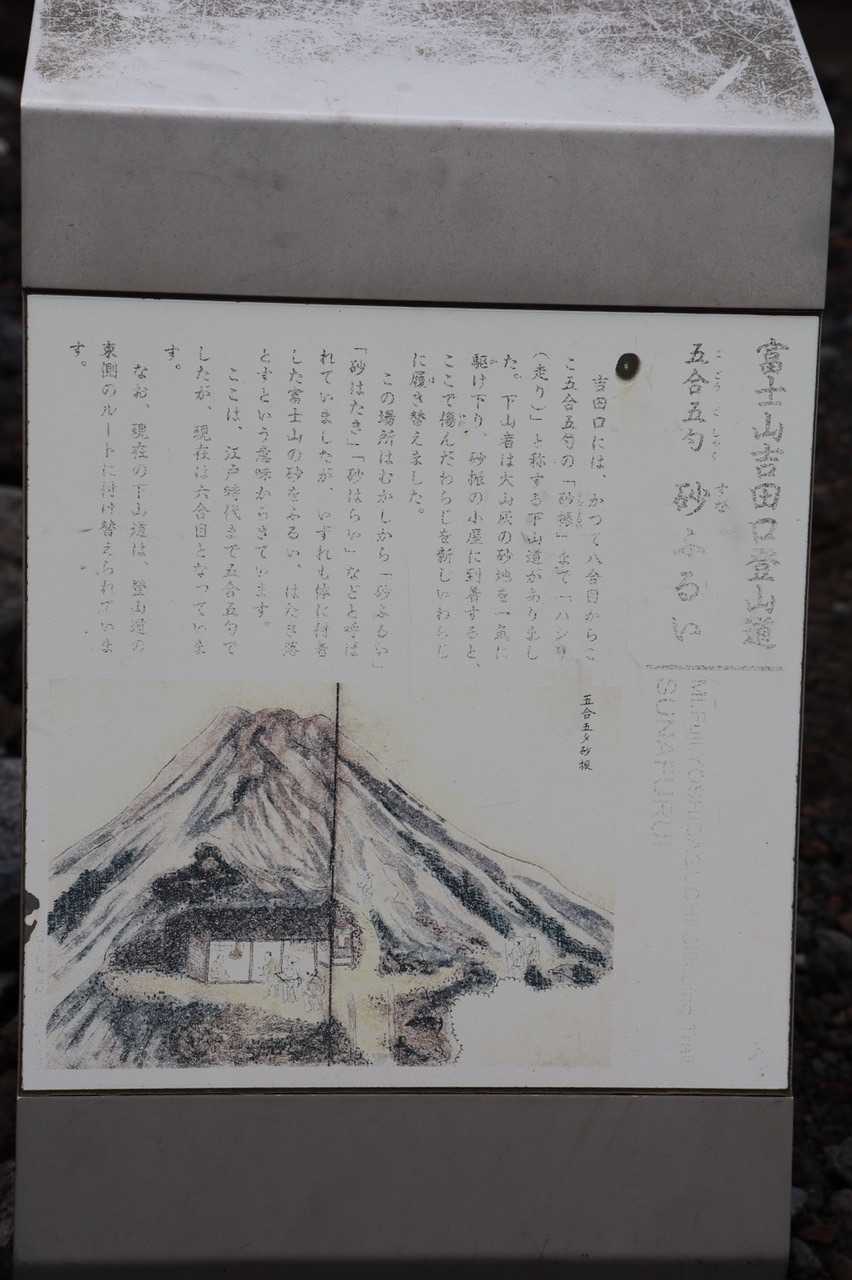 富士山吉田口登山道
五合五勺 砂ふるい
ごごうごしゃく すな
Mt.Fuji YOSHIDAGUCHI Climbing Trail
SUNAFURUI
吉田口には、かつて八合目からこ
こ五合五勺の「砂振」まで一ハシリ
(走り)と称する下山道がありまし
た。下山者は火山灰の砂地を一気に
駆け下り、砂振の小屋に到着すると、
ここで傷んだわらじを新しいわらじ
に履き替えました。
この場所はむかしから「砂ふるい」
「砂はたき」「砂はらい」などと呼ば
れていましたが、いずれも体に付着
した富士山の砂をふるい、はたき落
とすという意味からきています。
ここは、江戸時代まで五合五勺で
したが、現在は六合目となっていま
す。
なお、現在の下山道は、登山道の
東側のルートに付け替えられていま
す。
五合五夕砂振